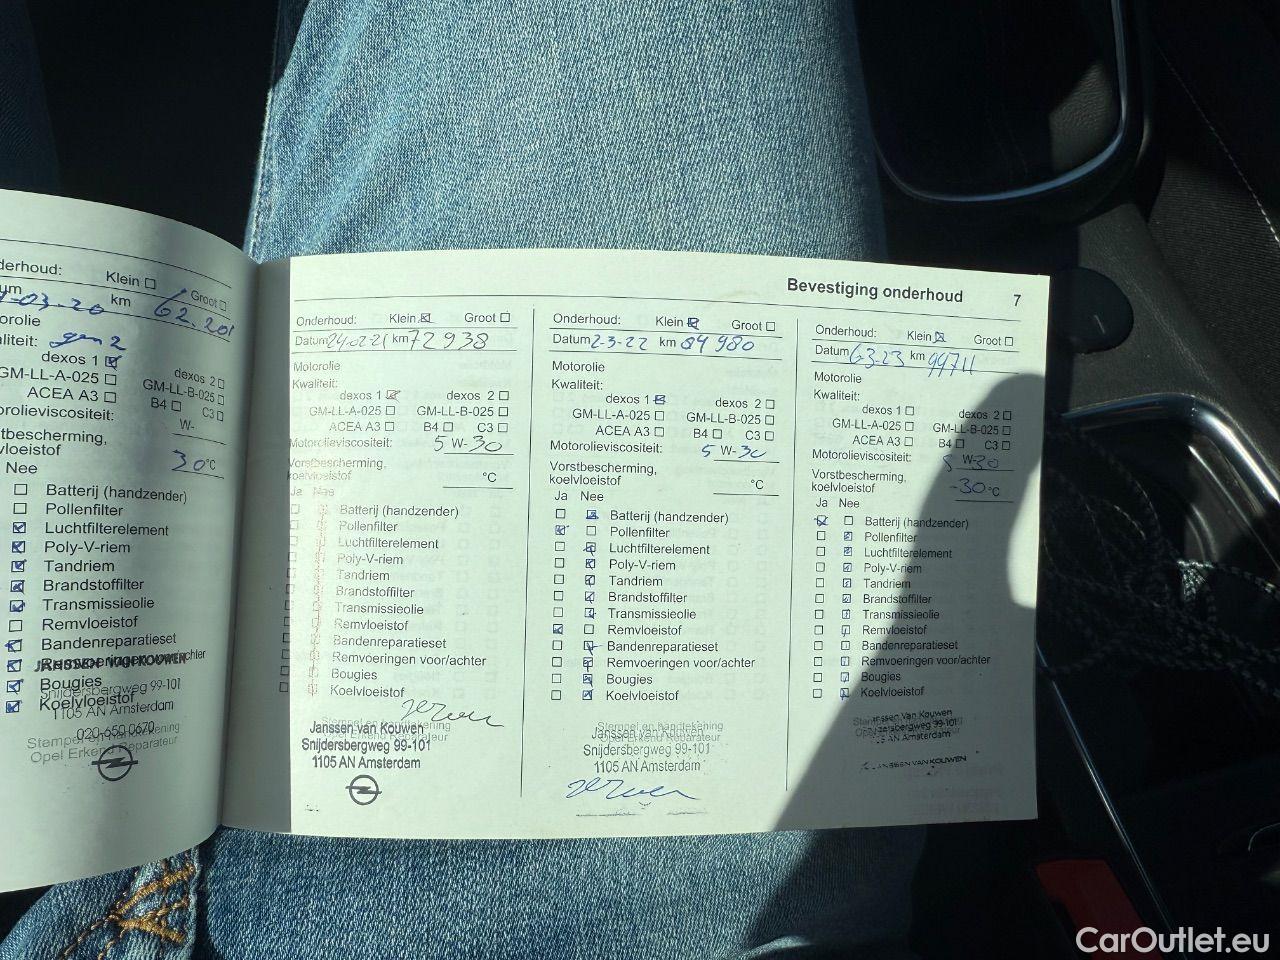 km 62.201
Klein
Groot
gen 2
dexos 1
dexos 2
GM-LL-A-025
GM-LL-B-025
ACEA A3
B4
C3
W-
30 °C
Nee
Batterij (handzender)
Pollenfilter
Luchtfilterelement
Poly-V-riem
Tandriem
Brandstoffilter
Transmissieolie
Remvloeistof
Bandenreparatieset
Remvoeringen voor/achter
Bougies
Koelvloeistof
JANSSEN VAN KOUWEN
Snijdersbergweg 99-101
1105 AN Amsterdam
020-650 0670
Stempel en handtekening
Opel Erkend Reparateur
Bevestiging onderhoud 7
Onderhoud: Klein Groot
Datum 24-02-21 km 72 938
Motorolie
Kwaliteit:
dexos 1 dexos 2
GM-LL-A-025 GM-LL-B-025
ACEA A3 B4 C3
Motorolieviscositeit: 5 W-30
Vorstbescherming,
koelvloeistof °C
Ja Nee
Batterij (handzender)
Pollenfilter
Luchtfilterelement
Poly-V-riem
Tandriem
Brandstoffilter
Transmissieolie
Remvloeistof
Bandenreparatieset
Remvoeringen voor/achter
Bougies
Koelvloeistof
Stempel en handtekening
Opel Erkend Reparateur
Janssen van Kouwen
Snijdersbergweg 99-101
1105 AN Amsterdam
Onderhoud: Klein Groot
Datum 2-3-22 km 84 980
Motorolie
Kwaliteit:
dexos 1 dexos 2
GM-LL-A-025 GM-LL-B-025
ACEA A3 B4 C3
Motorolieviscositeit: 5 W-30
Vorstbescherming,
koelvloeistof °C
Ja Nee
Batterij (handzender)
Pollenfilter
Luchtfilterelement
Poly-V-riem
Tandriem
Brandstoffilter
Transmissieolie
Remvloeistof
Bandenreparatieset
Remvoeringen voor/achter
Bougies
Koelvloeistof
Stempel en handtekening
Janssen van Kouwen
Snijdersbergweg 99-101
1105 AN Amsterdam
Onderhoud: Klein Groot
Datum 6-3-23 km 99711
Motorolie
Kwaliteit:
dexos 1 dexos 2
GM-LL-A-025 GM-LL-B-025
ACEA A3 B4 C3
Motorolieviscositeit: 5 W-30
Vorstbescherming,
koelvloeistof -30 °C
Ja Nee
Batterij (handzender)
Pollenfilter
Luchtfilterelement
Poly-V-riem
Tandriem
Brandstoffilter
Transmissieolie
Remvloeistof
Bandenreparatieset
Remvoeringen voor/achter
Bougies
Koelvloeistof
Janssen Van Kouwen
99-101
AN Amsterdam
JANSSEN VAN KOUWEN
CarOutlet.eu